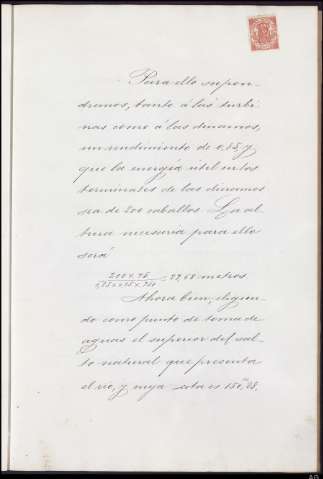 Para ello supon-
dremos, tanto á las turbi-
nas como á las dinamos,
un rendimiento de 0,85, y
que la energía útil en los
terminales de las dinamos
sea de 200 caballos. La al-
tura necesaria para ello
será
200 x 75
= 27,68 metros
Ahora bien, eligien-
do como punto de toma de
aguas el superior del sal-
to natural que presenta
el río, y cuya cota es 150,